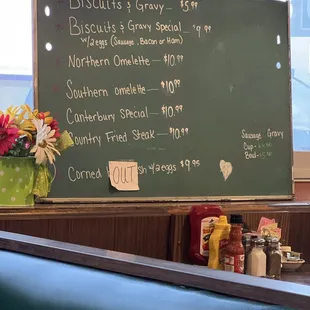 Biscuits & Gravy — $5.99
Biscuits & Gravy Special — $9.99
w/2 eggs (Sausage, Bacon or Ham)
Northern Omelette — $10.99
Southern omelette — $10.99
Canterbury Special — $10.99
Country Fried Steak — $10.99
Sausage Gravy
Cup
Bowl
Corned OUT sh w/2 eggs $9.99